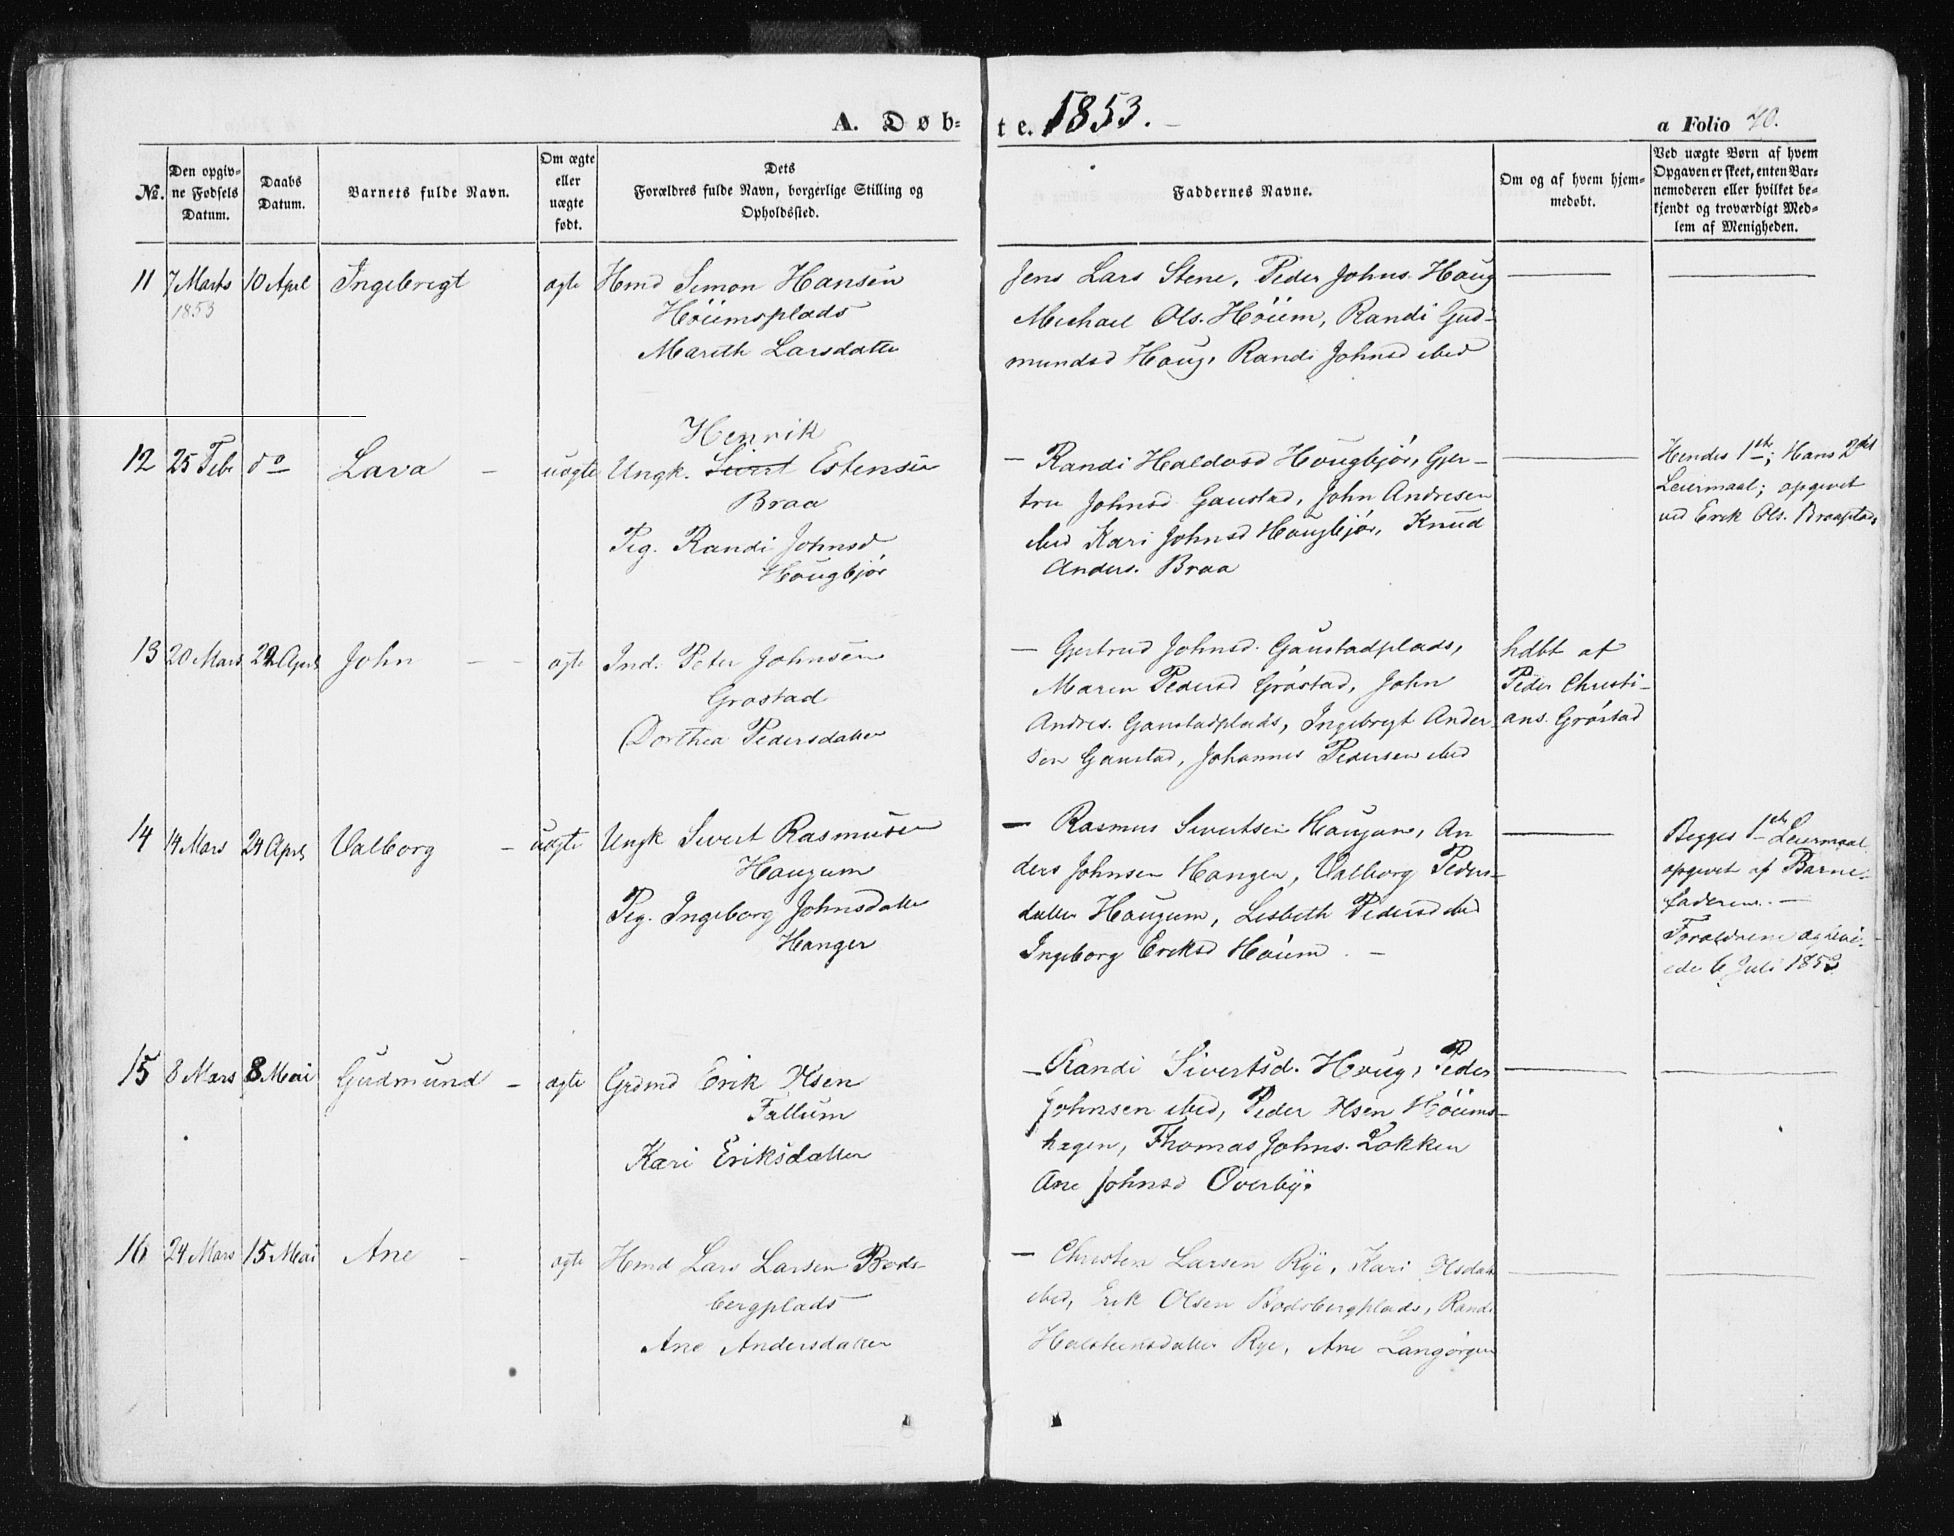 A. Døb-
te. 1853.
a Folio 40.
№.
Den opgiv-
ne Fødsels
Datum.
Daabs
Datum.
Barnets fulde Navn.
Om ægte
eller
uægte
født.
Dets
Forældres fulde Navn, borgerlige Stilling og
Opholdssted.
Faddernes Navne.
Om og af hvem hjem-
medøbt.
Ved uægte Børn af hvem
Opgaven er skeet, enten Bar-
nemoderen eller hvilket be-
kjendt og troværdigt Med-
lem af Menigheden.
11 7 Marts 10 Apl Ingebrigt ægte Hmd Simon Hansen
1853
Höiumsplads
Marith Larsdatter
Jens Lars Stene, Peder Johns. Houg
Michael Ols. Höium, Randi Gud-
mundsd Houg, Randi Johnsd ibid
12 25 Feb do Lava - uægte Ungk. Sivert Estensen
Henrik
Braa
Pig. Randi Johnsd
Hougbjör
- Randi Haldosd Hougbjör, Gjer-
tru Johnsd Gaustad, John Andresen
ibid Kari Johnsd Hougbjör, Knud
Anders. Braa
Hendes 1ste; Hans 2det
Leiermaal; opgivet
ved Erik Ols. Braaplads
13 20 Mars 22 April John - - ægte Ind. Peter Johnsen
Grøstad
Dorthea Pedersdatter
- Gjertrud Johnsd. Gaustadplads,
Maren Pedersd Gröstad, John
Andres. Gaustadplads, Ingebrigt Ander-
sen Gaustad, Johannes Pedersen ibid
hdbt af
Peder Christi-
ans. Gröstad
14 14 Mars 24 April Valborg - uægte Ungk Sivert Rasmusen
Haugum
Pig. Ingeborg Johnsdatter
Hanger
- Rasmus Sivertsen Haugum, An
ders Johnsen Hanger, Valborg Peders-
datter Haugum, Lisbeth Pedersd ibid
Ingeborg Eriksd Höium -
Begges 1ste Leiermaal
opgivet af Barne-
faderen. -
Forældrene
6 Juli 1853
15 8 Mars 8 Mai Gudmund - ægte Grdmd Erik Olsen
Fallum
Kari Eriksdatter
- Randi Sivertsd. Houg, Peder
Johnsen ibid, Peder Olsen Höiums-
hagen, Thomas Johns. Løkken
Ane Johnsd Overby.
16 24 Mars 15 Mai Ane - ægte Hmd Lars Larsen Bods-
bergplads
Ane Andersdatter
- Christen Larsen Rye, Kari Olsdatt
ibid, Erik Olsen Bodsbergplads, Randi
Halsteinsdatter Rye, Ane Langörgen